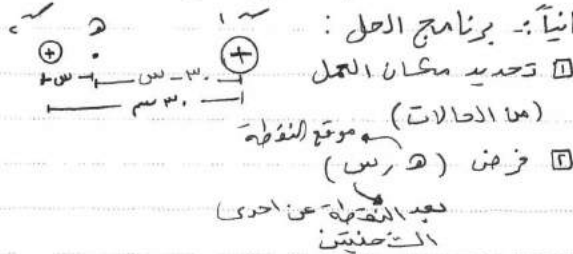 ثانياً :- برنامج الحل :
١ تحديد مكان العمل
(من الحالات)
موقع النقطة
٢ فرض ( هـ , س )
بعد النقطة عن احدى
الشحنتين
س١ هـ س٢
+ +
س ٣٠ - س
٣٠ سم